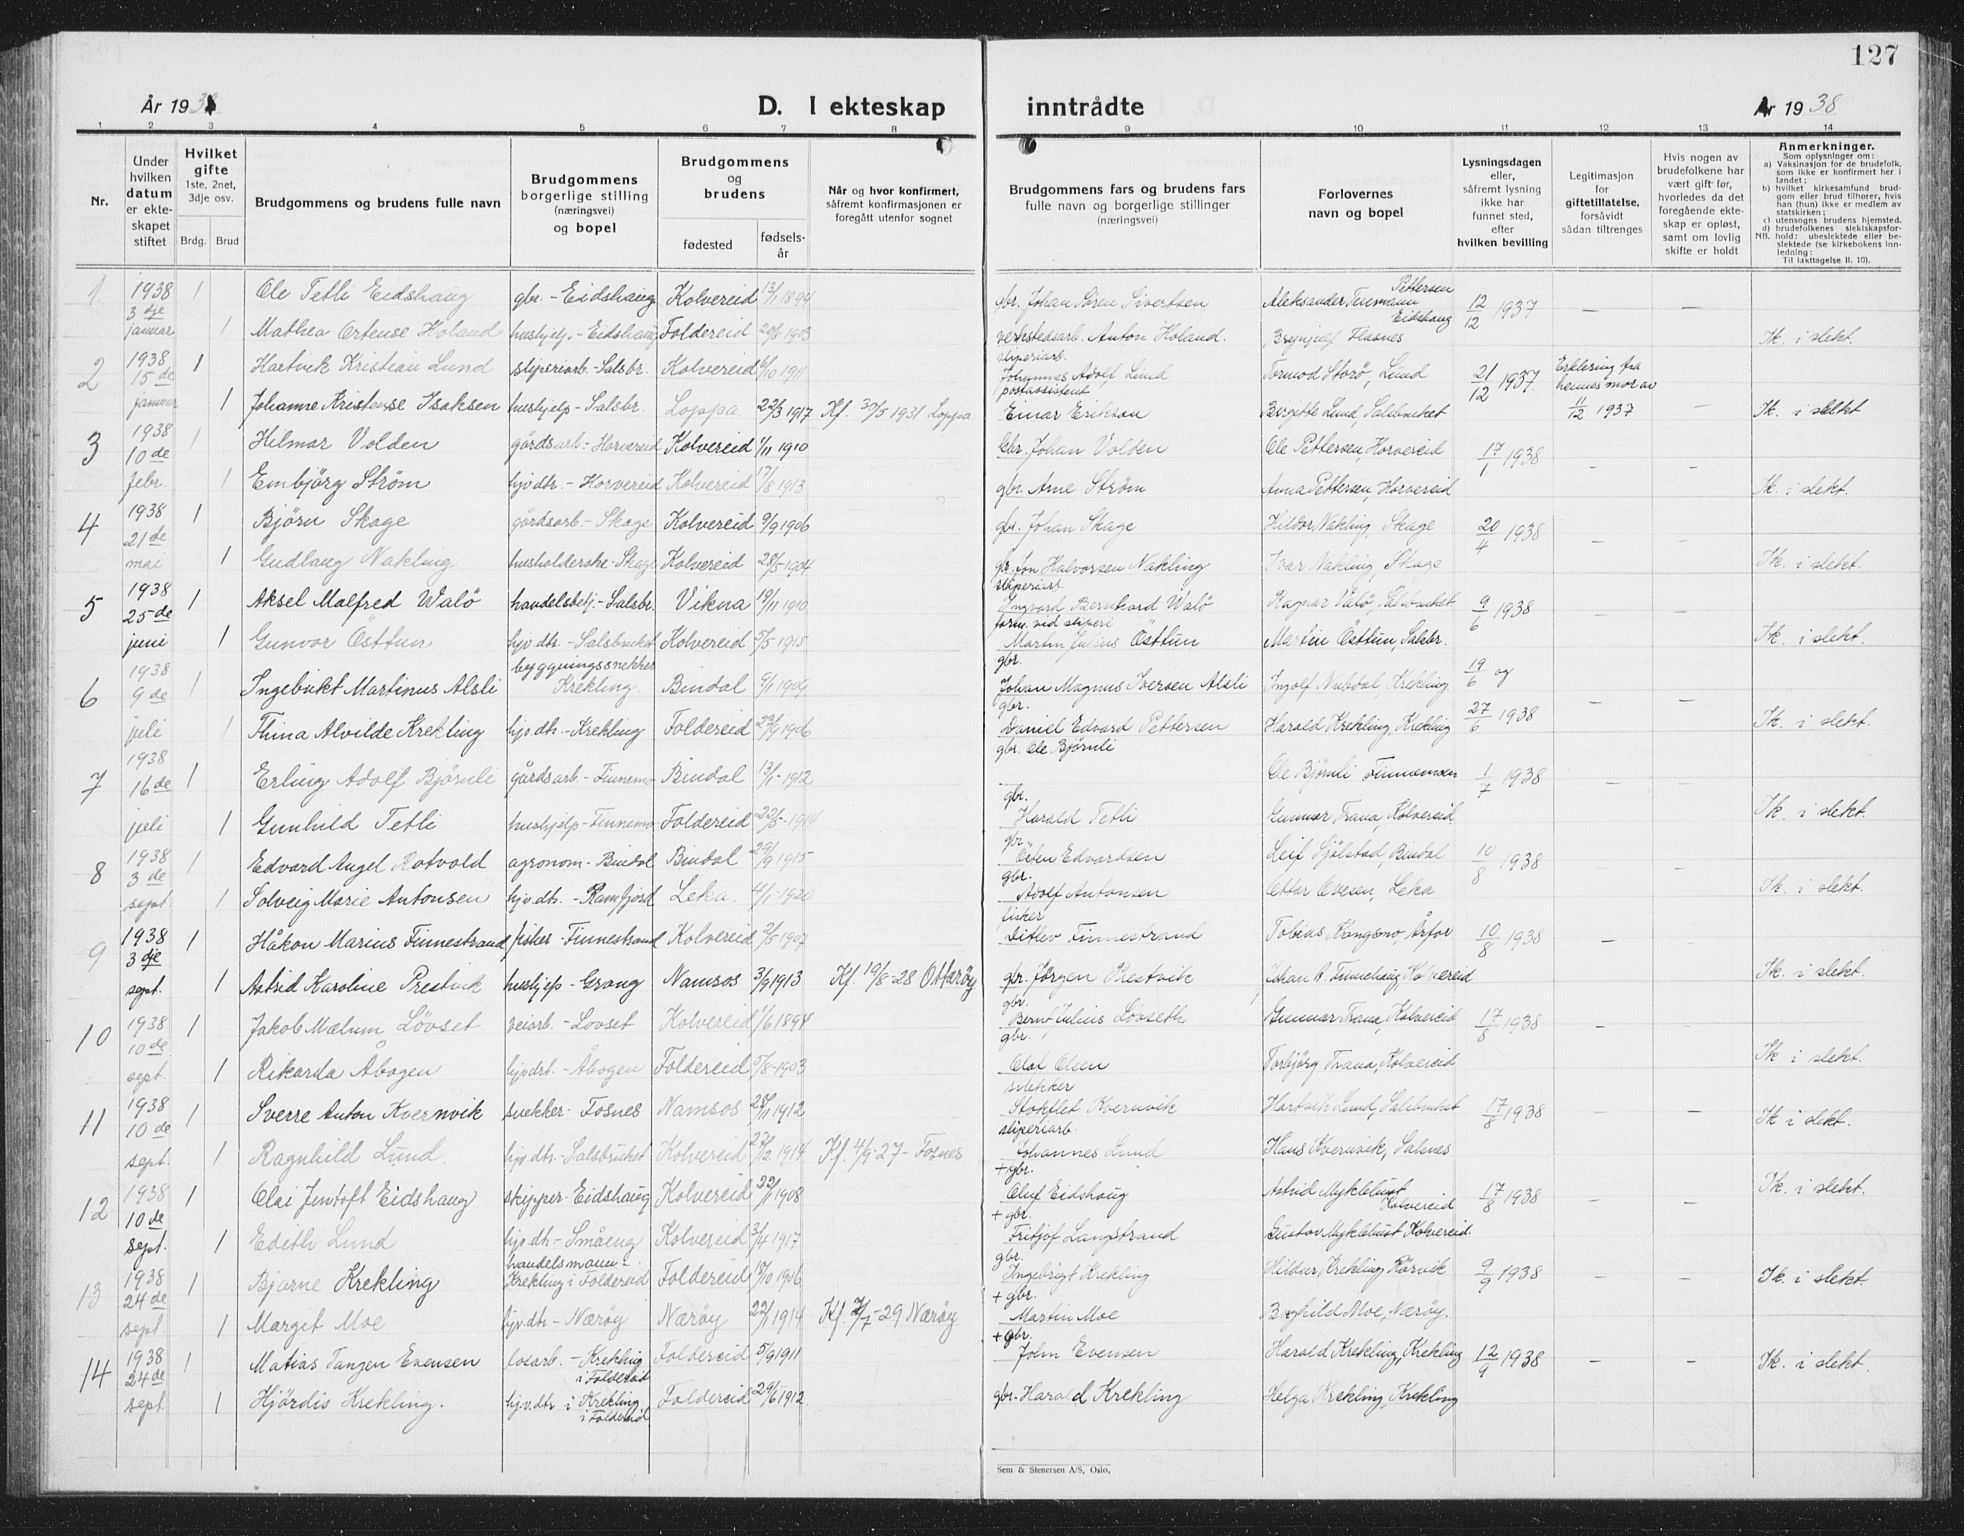 127
År 1938 D. I ekteskap inntrådte År 1938
1 2 3 4 5 6 7 8 9 10 11 12 13 14
Nr.
Under hvilken datum er ekteskapet stiftet
Hvilket gifte 1ste, 2net, 3dje osv.
Brdg. Brud
Brudgommens og brudens fulle navn
Brudgommens borgerlige stilling (næringsvei) og bopel
Brudgommens og brudens
fødested fødselsår
Når og hvor konfirmert, såfremt konfirmasjonen er foregått utenfor sognet
Brudgommens fars og brudens fars fulle navn og borgerlige stillinger (næringsvei)
Forlovernes navn og bopel
Lysningsdagen eller, såfremt lysning ikke har funnet sted, efter hvilken bevilling
Legitimasjon for giftetillatelse, forsåvidt sådan tiltrenges
Hvis nogen av brudefolkene har vært gift før, hvorledes da det foregående ekteskap er opløst, samt om lovlig skifte er holdt
Anmerkninger.
Som oplysninger om:
a) Vaksinasjon for de brudefolk, som ikke er konfirmert her i landet;
b) hvilket kirkesamfund brudgom eller brud tilhører, hvis han (hun) ikke er medlem av statskirken;
c) utensogns brudens hjemsted.
d) brudefolkenes slektskapsforhold: ubeslektede eller beslektede (se kirkebokens innledning:
NB. Til iakttagelse II. 10).
1 1938 3dje januar 1 Ole Tetli Eidshaug gbr. - Eidshaug Kolvereid 13/1 1894 br. Johan Søren Sivertsen Aleksander Teiemann Pettersen Eidshaug 12/12 1937 — —
1 Mathea Ortense Holand hushjelp. - Eidshaug Foldereid 20/8 1903 verkstedsarb. Anton Holand. Brynjulf Flasnes Ik. i slekt.
2 1938 15de januar 1 Hartvik Kristian Lund sliperiarb. - Salsbr. Kolvereid 6/10 1911 sliperiarb. Johannes Adolf Lund Tormod Storø, Lund 21/12 1937 Erklæring fra hennes mor av 11/12 1937 —
1 Johanne Kristense Isaksen hushjelp - Salsbr. Loppa 22/3 1917 Kf. 30/5 1931 Loppa postassistent Einar Eriksen Birgitte Lund, Salsbruket Ik. i slekt
3 1938 10de febr. 1 Hilmar Volden gårdsarb. - Horvereid Kolvereid 1/11 1910 Gbr. Johan Volden Ole Pettersen, Horvereid 17/1 1938 — —
1 Embjörg Ström hjv.dtr. - Horvereid Kolvereid 17/8 1913 gbr. Arne Ström Anna Pettersen, Horvereid Ik. i slekt.
4 1938 21de mai 1 Björn Skage gårdsarb - Skage Kolvereid 9/9 1906 gbr. Johan Skage Hildor Nakling, Skage 20/4 1938 — —
1 Gudlaug Nakling husholderske - Skage Kolvereid 28/5-1904 gbr. Jon Halvorsen Nakling Ivar Nakling, Skage Ik. i slekt.
5 1938 25de juni 1 Aksel Malfred Walø handelsbetj. - Salsbr. Vikna 19/11 1910 sliperiarb. Ingvard Bernhard Walø Ragnar Valø, Salsbruket 9/6 1938 — —
1 Gunvor Östtun hjv dtr - Salsbruket Kolvereid 1915 form. ved sliperi Martin Julius Östtun Martin Östtun, Salsbr. Ik. i slekt.
6 1938 9de juli 1 Ingebrikt Martinus Alsli byggningssnekker Krekling Bindal 9/1 1904 gbr. Johan Magnus Iversen Alsli Ingolf Nubdal, Krekling. 19/6 og 27/6 1938 — —
1 Thina Alvilde Krekling hjv dtr. - Krekling Foldereid 23/9 1906 gbr. Daniel Edvard Pettersen Harald Krekling, Krekling Ik. i slekt.
7 1938 16de juli 1 Erling Adolf Björnli gårdsarb - Finnemo Bindal 13/1-1912 gbr. Ole Björnli Ole Björnli Finnemoen 1/7 1938 — —
1 Gunhild Tetli hushjelp - Finnemo Foldereid 22/5-1914 gbr. Harald Tetli Gunnar Trana, Kolvereid Ik. i slekt.
8 1938 3de sept. 1 Edvard Angel Rotvold agronom - Bindal Bindal 29/9 1915 gbr. Östen Edvardsen Leif Sjølstad, Bindal 10/8 1938 — —
1 Solveig Marie Antonsen hjv.dtr. - Ramfjord Leka. 4/1-1920 gbr. Adolf Antonsen Ottar Ovesen, Leka Ik. i slekt.
9 1938 3dje sept. 1 Håkon Marius Finnestrand fisker - Finnestrand Kolvereid 2/5 1907 fisker Ditlev Finnestrand Tobias Kongsmo, Årfor 10/8 1938 — —
1 Astrid Karoline Prestvik hushjelp - Grong Namsos 3/9 1913 Kf. 19/8-28 Otterøy gbr. Jörgen Prestvik Johan A. Finnehaug Kolvereid Ik. i slekt.
10 1938 10de sept. 1 Jakob Mælum Lövset veiarb. - Lovset Kolvereid 1/6 1898 gbr. Bernt Julius Lövseth Gunnar Trana, Kolvereid 17/8 1938 — —
1 Rikarda Åbogen hjv.dtr. - Åbogen Foldereid 5/8-1903 gbr. Olab Olsen Torbjörg Trana, Kolvereid Ik. i slekt.
11 1938 10de sept. 1 Sverre Anton Kvernvik snekker - Fosnes Namsos 28/11 1912 snekker Stokflet Kvernvik Hartvik Lund, Salsbruket 17/8 1938 — —
1 Ragnhild Lund. hjv.dtr. - Salsbruket Kolvereid 22/12 1914 Kf. 4/9-27 - Fosnes sliperiarb. Johannes Lund Hans Kvernvik, Salsnes Ik. i slekt.
12 1938 10de sept. 1 Olai Jentoft Eidshaug skipper - Eidshaug Kolvereid 22/11 1908 + gbr. Oluf Eidshaug Astrid Myklebust Kolvereid 17/8 1938 — —
1 Edith Lund hjv.dtr - Småeng Kolvereid 3/4 1917 + gbr. Fritjof Langstrand Gustav Myklebust Kolvereid. Ik. i slekt.
13 1938 24de sept. 1 Bjarne Krekling handelsmann - Krekling i Foldereid Foldereid 15/10 1906 gbr. Ingebrigt Krekling Hildur Krekling Rörvik 9/9 1938 — — Ik. i slekt.
1 Margit Moe hjv.dtr - Nærøy Nærøy 22/11 1914 Kf. 7/7-29 Nærøy + gbr. Martin Moe Borghild Moe, Nærøy.
14 1938 24de sept 1 Matias Tangen Evensen losarb. - Krekling i Foldereid Foldereid 5/9 1911 + gbr. John Evensen Harald Krekling, Krekling 12/9 1938 — — Ik. i slekt.
1 Hjördis Krekling. hjv.dtr i Krekling i Foldereid Foldereid 29/6 1912 gbr. Harald Krekling Helga Krekling, Krekling
Sem & Stenersen A/S, Oslo.